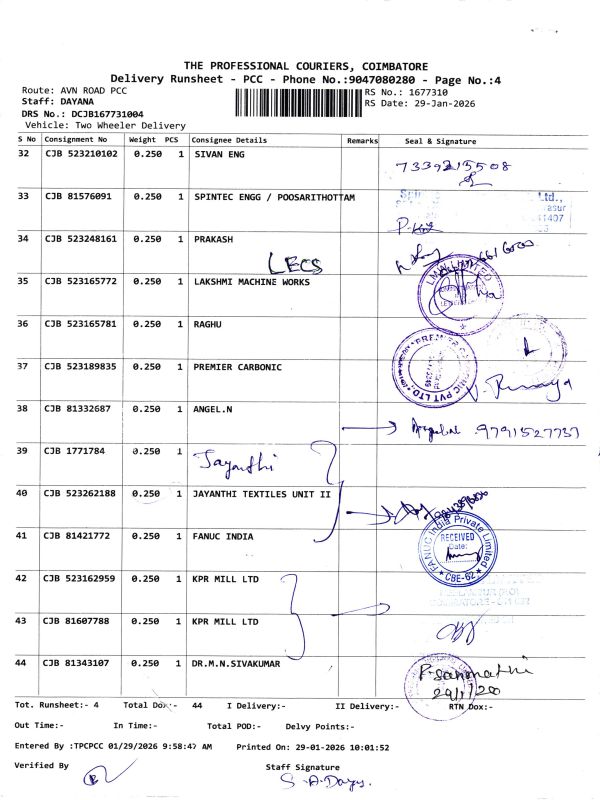 THE PROFESSIONAL COURIERS, COIMBATORE
Delivery Runsheet - PCC - Phone No.:9047080280 - Page No.:4
Route: AVN ROAD PCC
RS No.: 1677310
Staff: DAYANA
RS Date: 29-Jan-2026
DRS No.: DCJB167731004
Vehicle: Two Wheeler Delivery
S No Consignment No Weight PCS Consignee Details Remarks Seal & Signature
32 CJB 523210102 0.250 1 SIVAN ENG
7339215508
33 CJB 81576091 0.250 1 SPINTEC ENGG / POOSARITHOTTAM
Ltd.,
34 CJB 523248161 0.250 1 PRAKASH
LECS
35 CJB 523165772 0.250 1 LAKSHMI MACHINE WORKS
36 CJB 523165781 0.250 1 RAGHU
37 CJB 523189835 0.250 1 PREMIER CARBONIC
PVT LTD
38 CJB 81332687 0.250 1 ANGEL.N
9791527737
39 CJB 1771784 0.250 1
Jayanthi
40 CJB 523262188 0.250 1 JAYANTHI TEXTILES UNIT II
41 CJB 81421772 0.250 1 FANUC INDIA
FANUC India Private Limited
RECEIVED
Date:
CBE-62
42 CJB 523162959 0.250 1 KPR MILL LTD
43 CJB 81607788 0.250 1 KPR MILL LTD
44 CJB 81343107 0.250 1 DR.M.N.SIVAKUMAR
Tot. Runsheet:- 4 Total Dox:- 44 I Delivery:- II Delivery:- RTN Dox:-
Out Time:- In Time:- Total POD:- Delvy Points:-
Entered By :TPCPCC 01/29/2026 9:58:47 AM Printed On: 29-01-2026 10:01:52
Verified By
Staff Signature